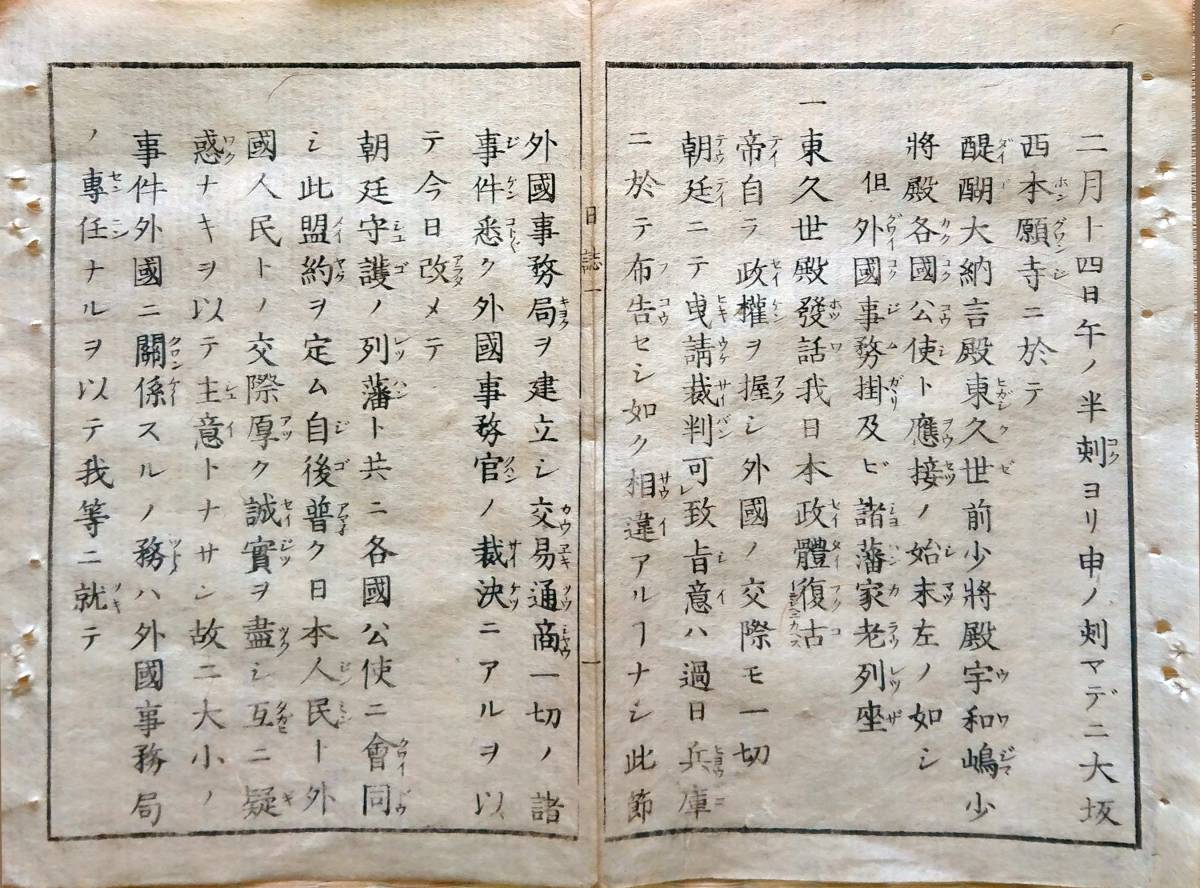 二月十四日午ノ半刻ヨリ申ノ刻マデニ大坂
西本願寺ニ於テ
醍醐大納言殿東久世前少將殿宇和嶋少
將殿各國公使ト應接ノ始末左ノ如シ
但外國事務掛及ビ諸藩家老列座
一東久世殿發話我日本政體復古
帝自ラ政權ヲ握シ外國ノ交際モ一切
朝廷ニテ曳請裁判可レ致旨意ハ過日兵庫
ニ於テ布告セシ如ク相違アルヿナシ此節
日誌一 一
外國事務局ヲ建立シ交易通商一切ノ諸
事件悉ク外國事務官ノ裁決ニアルヲ以
テ今日改メテ
朝廷守護ノ列藩ト共ニ各國公使ニ會同
シ此盟約ヲ定ム自後普ク日本人民ト外
國人民トノ交際厚ク誠實ヲ盡シ互ニ疑
惑ナキヲ以テ主意トナサン故ニ大小ノ
事件外國ニ關係スルノ務ハ外國事務局
ノ專任ナルヲ以テ我等ニ就テ